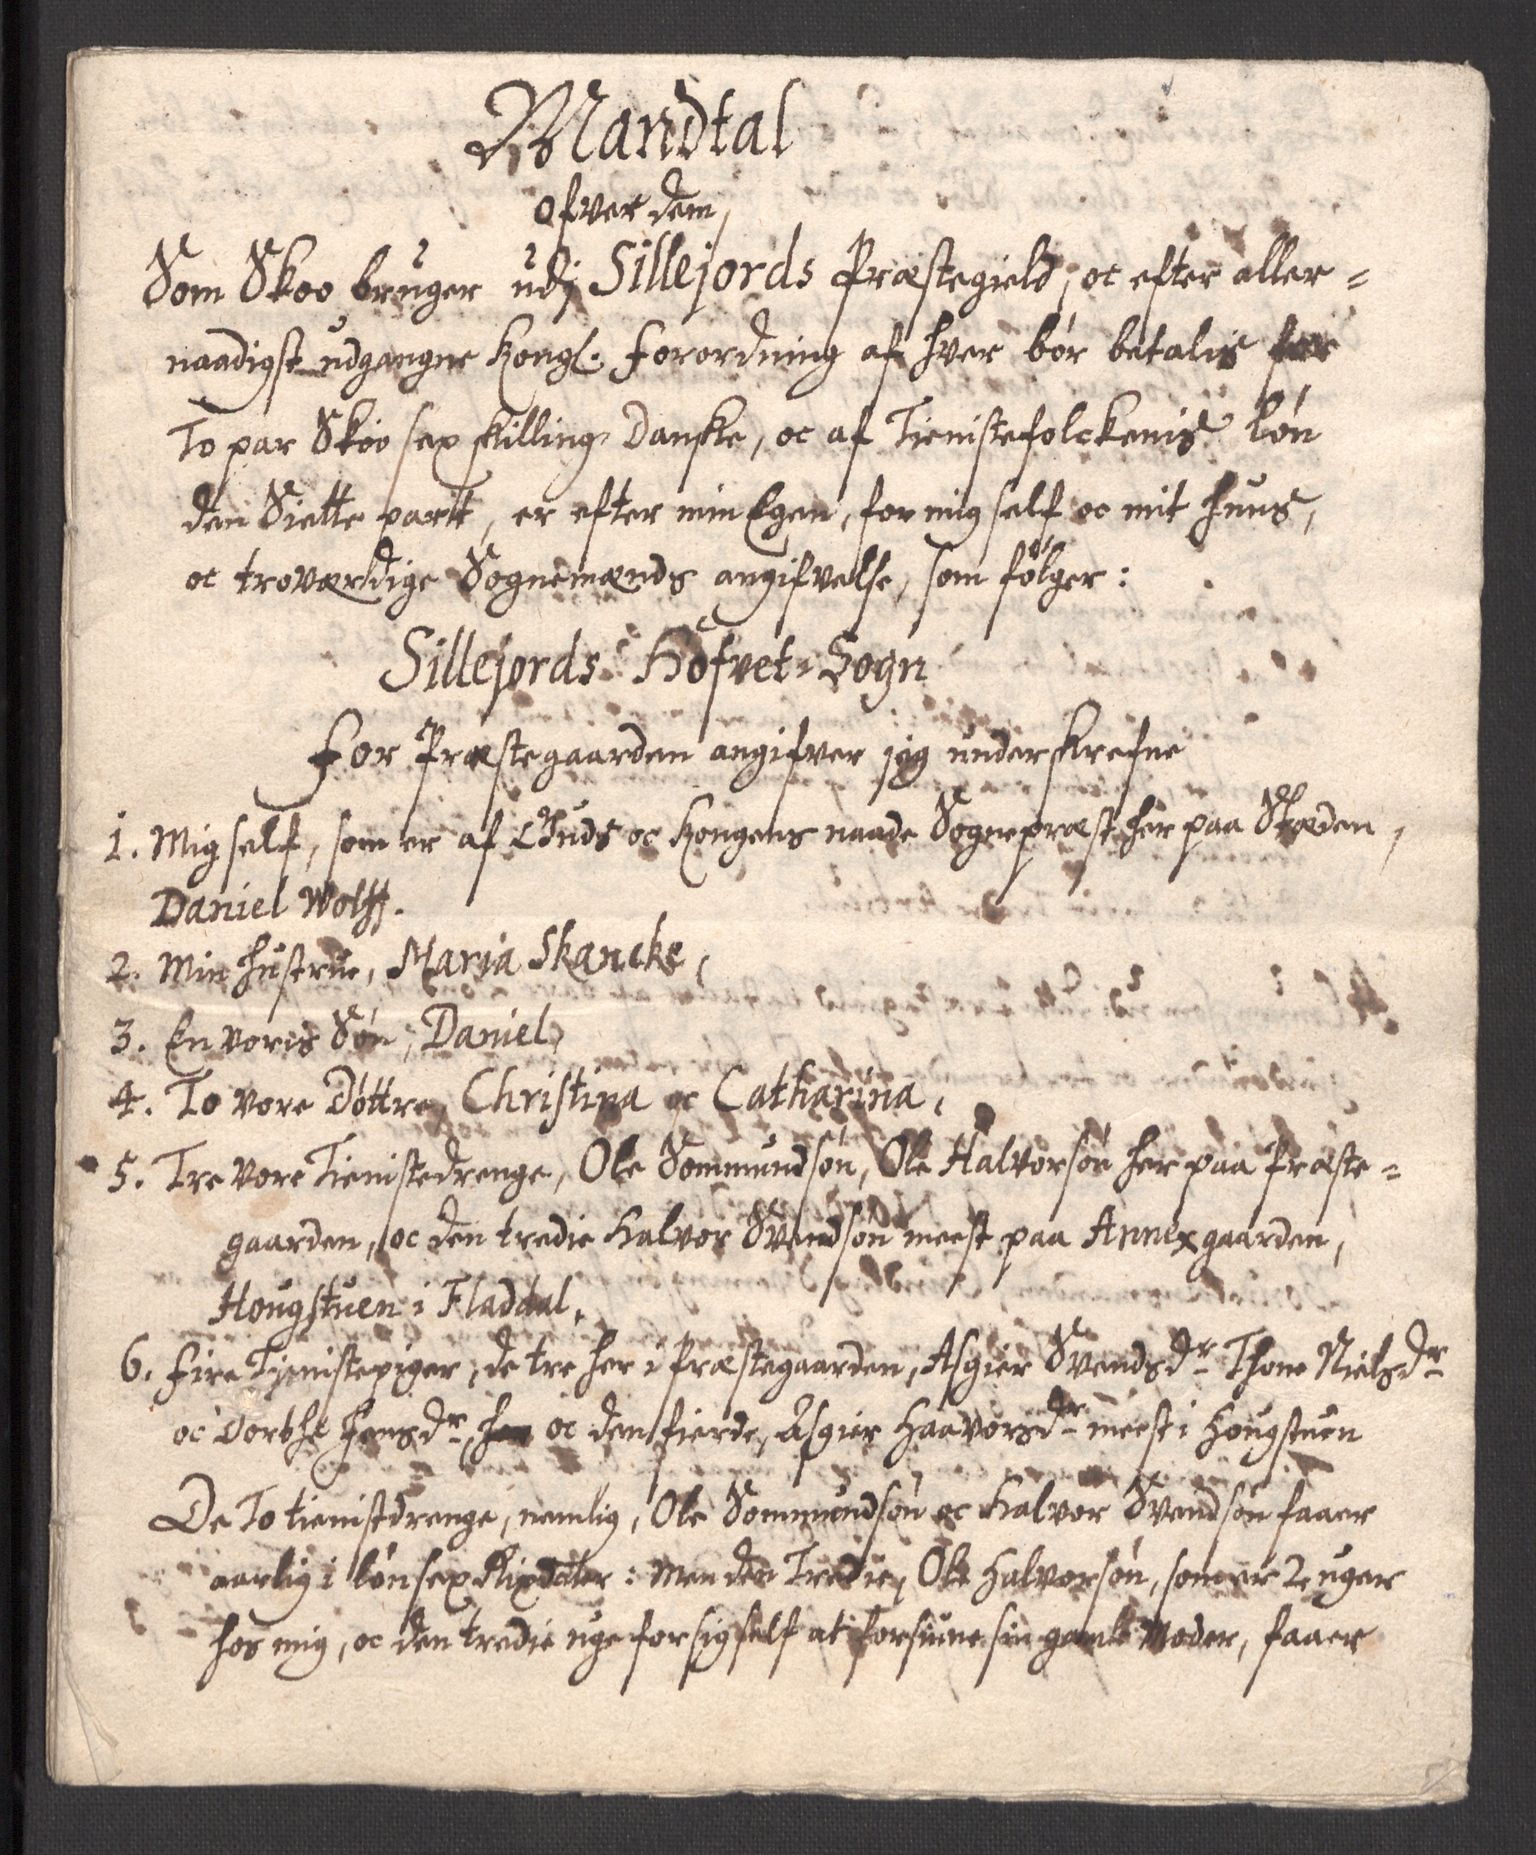 Mandtal
ofver dem,
Som Skoo bruger udj Sillejords Præstegield, oc efter aller=
naadigst udgangne Kongl. Forordning af hver bør betalis for
To par Skoo sex skilling Danske, oc af Tienistefolckenis løn
den Siette part, er efter min Egen, for mig self oc mit huus,
oc troværdige Sognemænds angifvelse, som følger:
Sillejords Hofvet-Sogn
For Præstegaarden angifver jeg underskrefne
1. Mig self, som er af Guds oc Kongens naade Sognepræst her paa Stæden,
Daniel Wolff.
2. Min hustrue, Maria Skancke,
3. En voris Søn, Daniel,
4. To vore Døttre, Christina oc Catharina,
5. Tre vore Tienistedrenge, Ole Sommundsøn, Ole Halvorsøn her paa Præste=
gaarden, oc den tredie Halvor Svendsøn meest paa Annexgaarden,
Hougstuen i Fladdal.
6. Fire Tjenistepiger, de tre her i Præstegaarden, Asgier Svendsdr Thone Nielsdr
oc Dorthe Jensdr, oc den fierde, Asgier Haavorsdr meest i Hougstuen
De To tienistdrenge, nemlig, Ole Sommundsøn oc Halvor Svendsøn faaer
aarlig i løn sex Rixdaler: Men den Tredie, Ole Halvorsøn, som er 2 uger
hos mig, oc den tredie uge for sig self at forsiune sin gamle Moder, faaer